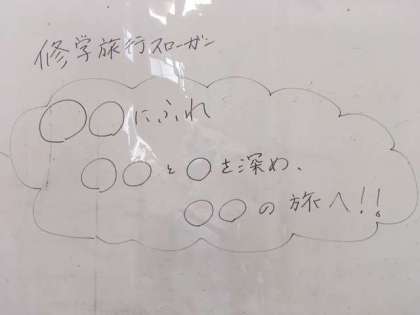 修学旅行スローガン
○○にふれ
○○と○を深め、
○○の旅へ!!